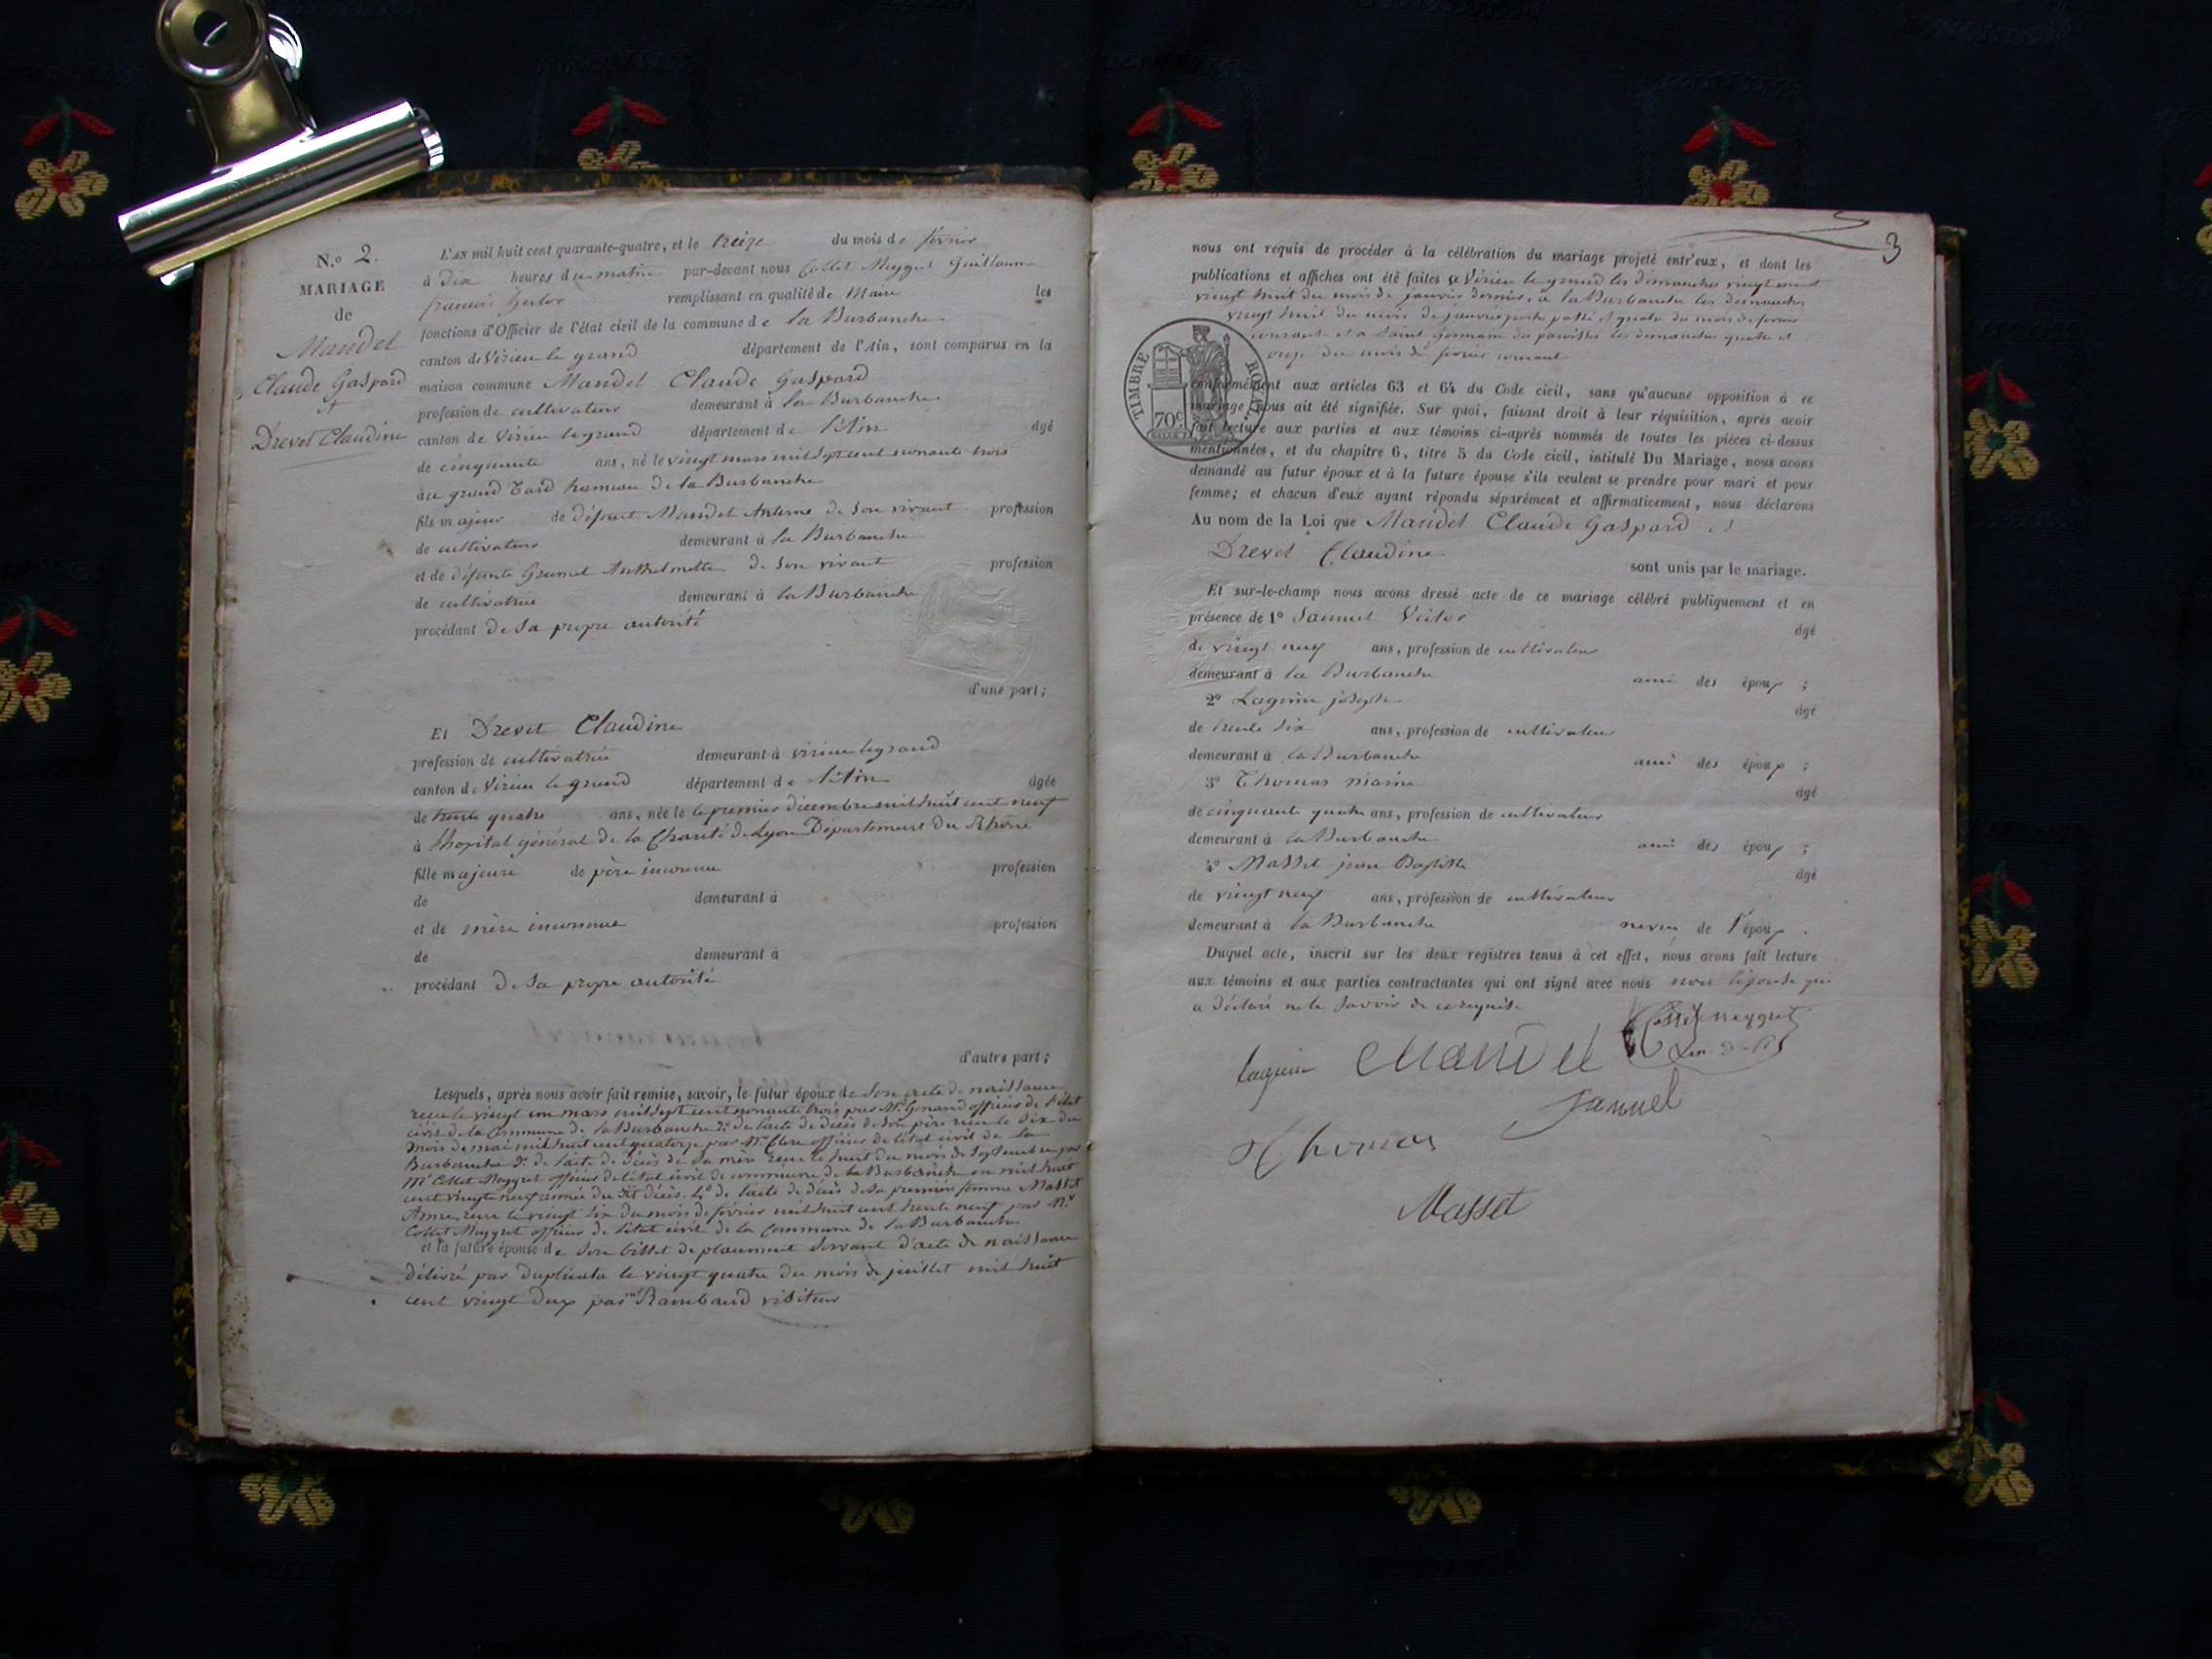 N.o 2.
MARIAGE
de
Mandel
Claude Gaspard
et
Drevet Claudine
L'AN mil huit cent quarante-quatre, et le treize du mois de février
à dix heures du matin par-devant nous Collet Meygret Guillaume
françois hector remplissant en qualité de Maire les
fonctions d'Officier de l'état civil de la commune de la Burbanche
canton de Virieu le grand département de l'Ain, sont comparus en la
maison commune Mandel Claude Gaspard
profession de cultivateur demeurant à la Burbanche
canton de Virieu legrand département de l'Ain âgé
de cinquante ans, né le vingt mars mil sept cent nonante trois
au grand Tard hameau de la Burbanche
fils majeur de défunt Mandel Antoine de son vivant profession
de cultivateur demeurant à la Burbanche
et de défunte Grumel Anthelmette de son vivant profession
de cultivatrice demeurant à la Burbanche
procédant de sa propre autorité
d'une part;
Et Drevet Claudine
profession de cultivatrice demeurant à virieu legrand
canton de Virieu le grand département de l'Ain âgée
de trente quatre ans, née le le premier décembre mil huit cent neuf
à l'hopital général de la Charité de Lyon Département du Rhône
fille majeure de père inconnu profession
de demeurant à
et de mère inconnue profession
de demeurant à
procédant de sa propre autorité
d'autre part;
Lesquels, après nous avoir fait remise, savoir, le futur époux de son acte de naissance
reçu le vingt un mars mil sept cent nonante trois par Mr Genand officier de l'état
civil de la Commune de la Burbanche 2º de l'acte de décès de son père reçu le dix du
mois de mai mil huit cent quatorze par Mr Clerc officier de l'état civil de la
Burbanche 3º de l'acte de décès de sa mère reçu le huit du mois de septembre par
Mr Collet Meygret officier de l'état civil de commune de la Burbanche en mil huit
cent vingt neuf année du dit décès. 4º de l'acte de décès de sa première femme Masset
Anne, reçu le vingt six du mois de février mil huit cent trente neuf par Mr
Collet Meygret officier de l'état civil de la Commune de la Burbanche
et la future épouse de son billet de placement servant d'acte de naissance
délivré par duplicata le vingt quatre du mois de juillet mil huit
cent vingt deux par mr Rambaud visiteur
3
nous ont requis de procéder à la célébration du mariage projeté entr'eux, et dont les
publications et affiches ont été faites à Virieu le grand les dimanches vingt un et
vingt huit du mois de janvier dernier, à la Burbanche les dimanches
vingt huit du mois de janvier passé et quatre du mois de février
courant et à Saint Germain les paroisses les dimanches quatre et
onze du mois de février courant
TIMBRE ROYAL
70c
conformément aux articles 63 et 64 du Code civil, sans qu'aucune opposition à ce
mariage nous ait été signifiée. Sur quoi, faisant droit à leur réquisition, après avoir
fait lecture aux parties et aux témoins ci-après nommés de toutes les pièces ci-dessus
mentionnées, et du chapitre 6, titre 5 du Code civil, intitulé Du Mariage, nous avons
demandé au futur époux et à la future épouse s'ils veulent se prendre pour mari et pour
femme; et chacun d'eux ayant répondu séparément et affirmativement, nous déclarons
Au nom de la Loi que Mandel Claude Gaspard et
Drevet Claudine
sont unis par le mariage.
Et sur-le-champ nous avons dressé acte de ce mariage célébré publiquement et en
présence de 1º Samuel Victor âgé
de vingt neuf ans, profession de cultivateur
demeurant à la Burbanche ami des époux ;
2º Laguin joseph âgé
de trente six ans, profession de cultivateur
demeurant à la Burbanche ami des époux ;
3º Thomas marin âgé
de cinquante quatre ans, profession de cultivateur
demeurant à la Burbanche ami des époux ;
4º Masset jean Baptiste âgé
de vingt neuf ans, profession de cultivateur
demeurant à la Burbanche neveu de l'époux .
Duquel acte, inscrit sur les deux registres tenus à cet effet, nous avons fait lecture
aux témoins et aux parties contractantes qui ont signé avec nous non l'épouse qui
a déclaré ne le savoir de ce requise.
Collet Meygret
laguin Mandel
Samuel
Thomas
Masset